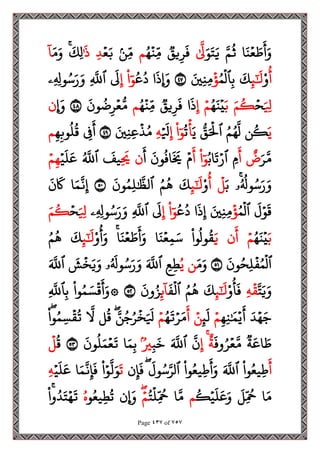 وَأَطَعْنَا ثُمَّ يَتَوَلَّىٰ فَرِيقٌ مِّنْهُم مِّنۢ بَعْدِ ذَٰلِكَ ۚ وَمَآ
أُو۟لَـٰٓئِكَ بِٱلْمُؤْمِنِينَ ٤٧ وَإِذَا دُعُوٓا۟ إِلَى ٱللَّهِ وَرَسُولِهِۦ
لِيَحْكُمَ بَيْنَهُمْ إِذَا فَرِيقٌ مِّنْهُم مُّعْرِضُونَ ٤٨ وَإِن
يَكُن لَّهُمُ ٱلْحَقُّ يَأْتُوٓا۟ إِلَيْهِ مُذْعِنِينَ ٤٩ أَفِى قُلُوبِهِم
مَّرَضٌ أَمِ ٱرْتَابُوٓا۟ أَمْ يَخَافُونَ أَن يَحِيفَ ٱللَّهُ عَلَيْهِمْ
وَرَسُولُهُۥ ۚ بَلْ أُو۟لَـٰٓئِكَ هُمُ ٱلظَّـٰلِمُونَ ٥٠ إِنَّمَا كَانَ
قَوْلَ ٱلْمُؤْمِنِينَ إِذَا دُعُوٓا۟ إِلَى ٱللَّهِ وَرَسُولِهِۦ لِيَحْكُمَ
بَيْنَهُمْ أَن يَقُولُوا۟ سَمِعْنَا وَأَطَعْنَا ۚ وَأُو۟لَـٰٓئِكَ هُمُ
ٱلْمُفْلِحُونَ ٥١ وَمَن يُطِعِ ٱللَّهَ وَرَسُولَهُۥ وَيَخْشَ ٱللَّهَ
وَيَتَّقْهِ فَأُو۟لَـٰٓئِكَ هُمُ ٱلْفَآئِزُونَ ٥٢ ۞ وَأَقْسَمُوا۟ بِٱللَّهِ
جَهْدَ أَيْمَـٰنِهِمْ لَئِنْ أَمَرْتَهُمْ لَيَخْرُجُنَّ ۖ قُل لَّا تُقْسِمُوا۟ ۖ
طَاعَةٌ مَّعْرُوفَةٌ ۚ إِنَّ ٱللَّهَ خَبِيرٌۢ بِمَا تَعْمَلُونَ ٥٣ قُلْ
أَطِيعُوا۟ ٱللَّهَ وَأَطِيعُوا۟ ٱلرَّسُولَ ۖ فَإِن تَوَلَّوْا۟ فَإِنَّمَا عَلَيْهِ
مَا حُمِّلَ وَعَلَيْكُم مَّا حُمِّلْتُمْ ۖ وَإِن تُطِيعُوهُ تَهْتَدُوا۟ ۚ
Page 437 of 757